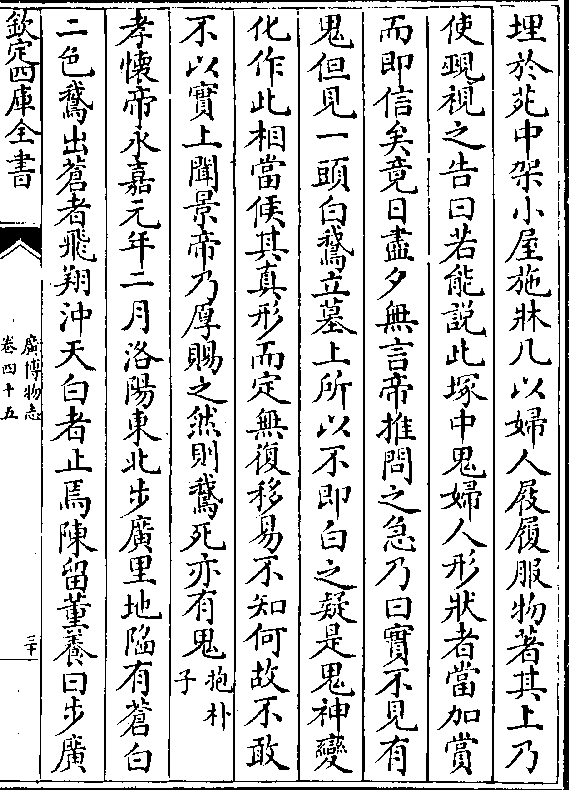 埋於苑中架小屋施牀几以婦人屐履服物著其上乃
使覡視之告曰若能說此塚中鬼婦人形狀者當加賞
而即信矣竟日盡夕無言帝推問之急乃曰實不見有
鬼但見一頭白鵞立墓上所以不即白之疑是鬼神變
化作此相當候其真形而定無復移易不知何故不敢
不以實上聞景帝乃厚賜之然則鵞死亦有鬼抱朴子
孝懷帝永嘉元年二月洛陽東北步廣里地陷有蒼白
二色鵞出蒼者飛翔沖天白者止焉陳留董養曰步廣
欽定四庫全書
廣博物志
卷四十五
三十